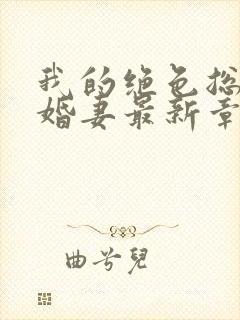 我的绝色总
婚妻最新章
曲兮兒